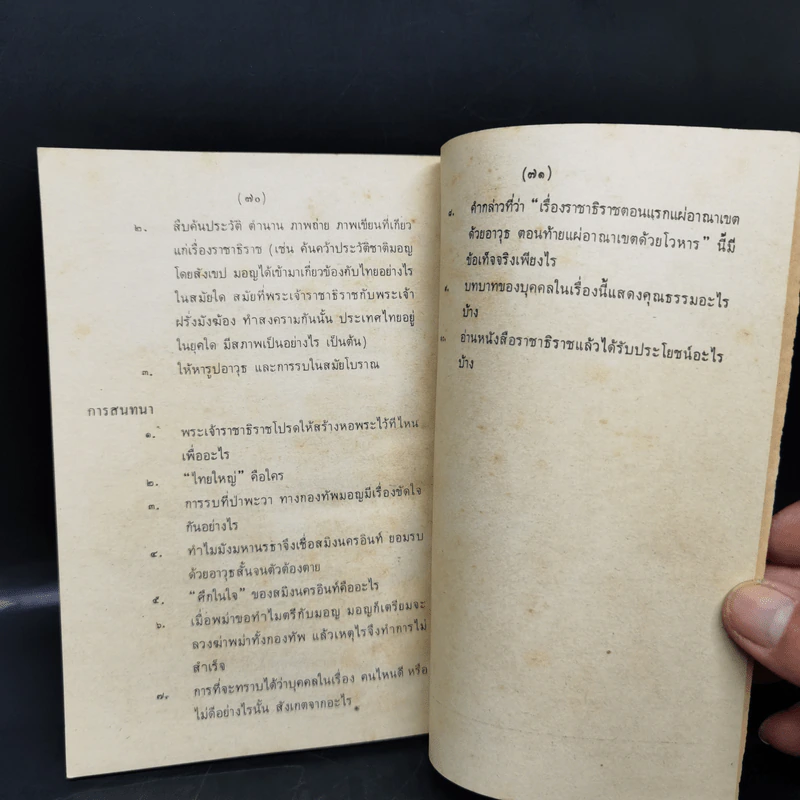 (๗๐)
๒. สืบค้นประวัติ ตำนาน ภาพถ่าย ภาพเขียนที่เกี่ยว
แก่เรื่องราชาธิราช (เช่น ค้นคว้าประวัติชาติมอญ
โดยสังเขป มอญได้เข้ามาเกี่ยวข้องกับไทยอย่างไร
ในสมัยใด สมัยที่พระเจ้าราชาธิราชกับพระเจ้า
ฝรั่งมังฆ้อง ทำสงครามกันนั้น ประเทศไทยอยู่
ในยุคใด มีสภาพเป็นอย่างไร เป็นต้น)
๓. ให้หารูปอาวุธ และการรบในสมัยโบราณ
การสนทนา
๑. พระเจ้าราชาธิราชโปรดให้สร้างหอพระไว้ที่ไหน
เพื่ออะไร
๒. “ไทยใหญ่” คือใคร
๓. การรบที่ป่าพะวา ทางกองทัพมอญมีเรื่องขัดใจ
กันอย่างไร
๔. ทำไมมังมหานรธาจึงเชื่อสมิงนครอินท์ ยอมรบ
ด้วยอาวุธสั้นจนตัวต้องตาย
๕. “ศึกในใจ” ของสมิงนครอินท์คืออะไร
๖. เมื่อพม่าขอทำไมตรีกับมอญ มอญก็เตรียมจะ
ลวงฆ่าพม่าทั้งกองทัพ แล้วเหตุไรจึงทำการไม่
สำเร็จ
๗. การที่จะทราบได้ว่าบุคคลในเรื่อง คนไหนดี หรือ
ไม่ดีอย่างไรนั้น สังเกตจากอะไร
(๗๑)
คำกล่าวที่ว่า “เรื่องราชาธิราชตอนแรกแผ่อาณาเขต
ด้วยอาวุธ ตอนท้ายแผ่อาณาเขตด้วยโวหาร” นี้มี
ข้อเท็จจริงเพียงไร
บทบาทของบุคคลในเรื่องนี้แสดงคุณธรรมอะไร
บ้าง
อ่านหนังสือราชาธิราชแล้วได้รับประโยชน์อะไร
บ้าง